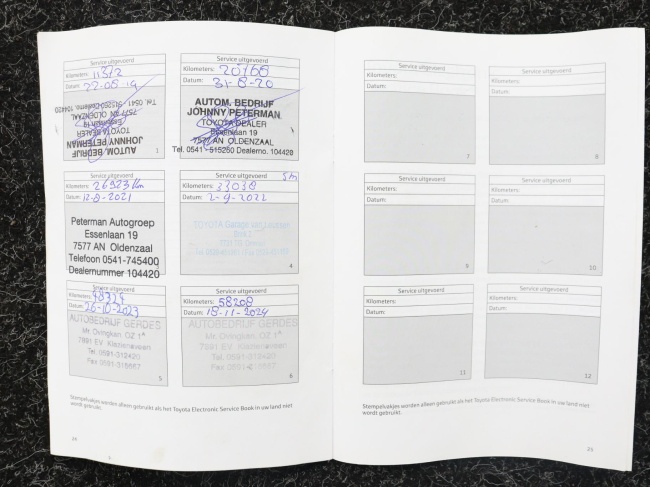 Service uitgevoerd
Kilometers: 11372
Datum: 22-08-19
AUTOM. BEDRIJF
JOHNNY PETERMAN
TOYOTA DEALER
Essenlaan 19
7577 AN OLDENZAAL
Tel. 0541 - 515260 Dealerno. 104420
1
Service uitgevoerd
Kilometers: 20768
Datum: 31-8-20
AUTOM. BEDRIJF
JOHNNY PETERMAN
TOYOTA DEALER
Essenlaan 19
7577 AN OLDENZAAL
Tel. 0541 - 515260 Dealerno. 104420
Service uitgevoerd
Kilometers: 26923 km
Datum: 12-8-2021
Peterman Autogroep
Essenlaan 19
7577 AN Oldenzaal
Telefoon 0541-745400
Dealernummer 104420
Service uitgevoerd
Kilometers: 33038
Datum: 2-9-2022
TOYOTA Garage
4
Service uitgevoerd
Kilometers: 48329
Datum: 26-10-2023
AUTOBEDRIJF GERDES
Mr. Ovingkan. OZ 1
7891 EV Klazienaveen
Tel. 0591-312420
Fax 0591-315667
5
Service uitgevoerd
Kilometers: 58208
Datum: 18-11-2024
AUTOBEDRIJF GERDES
Mr. Ovingkan. OZ 1
7891 EV Klazienaveen
Tel. 0591-312420
Fax 0591-315667
6
Stempelvakjes worden alleen gebruikt als het Toyota Electronic Service Book in uw land niet
wordt gebruikt.
24
Service uitgevoerd
Kilometers:
Datum:
7
Service uitgevoerd
Kilometers:
Datum:
8
Service uitgevoerd
Kilometers:
Datum:
9
Service uitgevoerd
Kilometers:
Datum:
10
Service uitgevoerd
Kilometers:
Datum:
11
Service uitgevoerd
Kilometers:
Datum:
12
Stempelvakjes worden alleen gebruikt als het Toyota Electronic Service Book in uw land niet
wordt gebruikt.
25